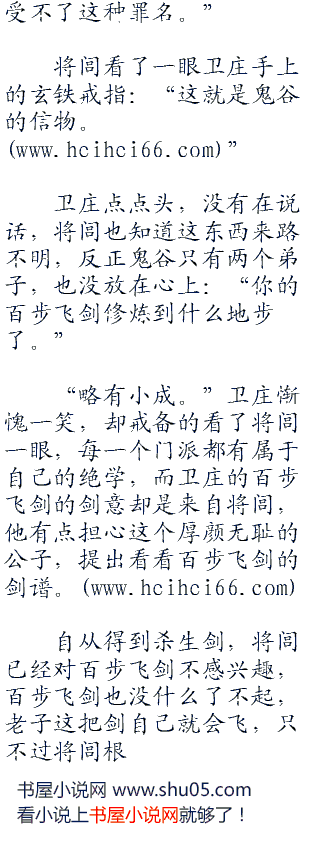 受不了这种罪名。”
将闾看了一眼卫庄手上
的玄铁戒指：“这就是鬼谷
的信物。
(www.hcihci66.com)”
卫庄点点头，没有在说
话，将闾也知道这东西来路
不明，反正鬼谷只有两个弟
子，也没放在心上：“你的
百步飞剑修炼到什么地步
了。”
“略有小成。”卫庄惭
愧一笑，却戒备的看了将闾
一眼，每一个门派都有属于
自己的绝学，而卫庄的百步
飞剑的剑意却是来自将闾，
他有点担心这个厚颜无耻的
公子，提出看看百步飞剑的
剑谱。(www.hcihci66.com)
自从得到杀生剑，将闾
已经对百步飞剑不感兴趣，
百步飞剑也没什么了不起，
老子这把剑自己就会飞，只
不过将闾根
书屋小说网 www.shu05.com
看小说上书屋小说网就够了！